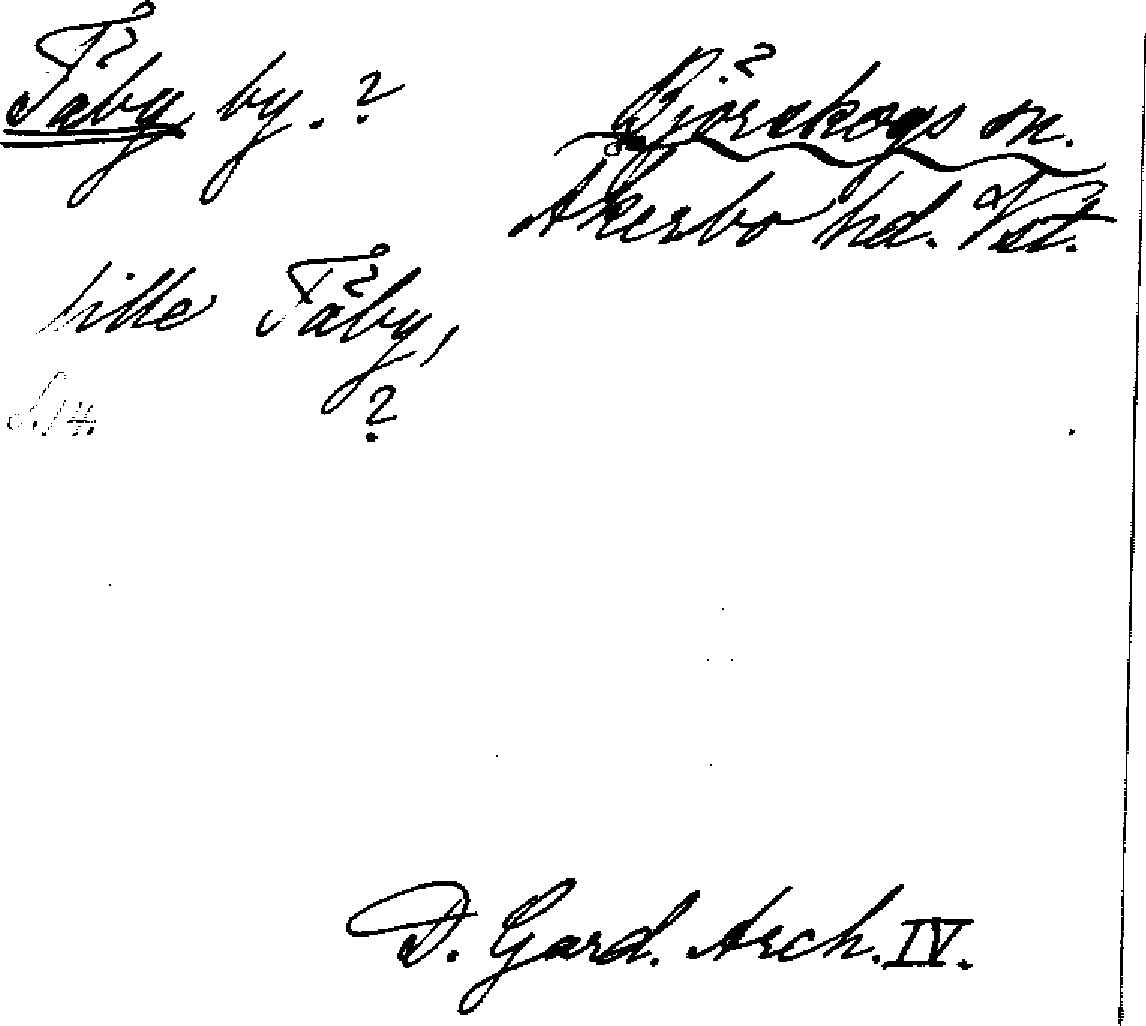 Tåby by. ?
Björskogs sn.
Åkerbo hd. Vstm.
lille Tåby,
?
S. 14.
D. Gard. Arch. IV.